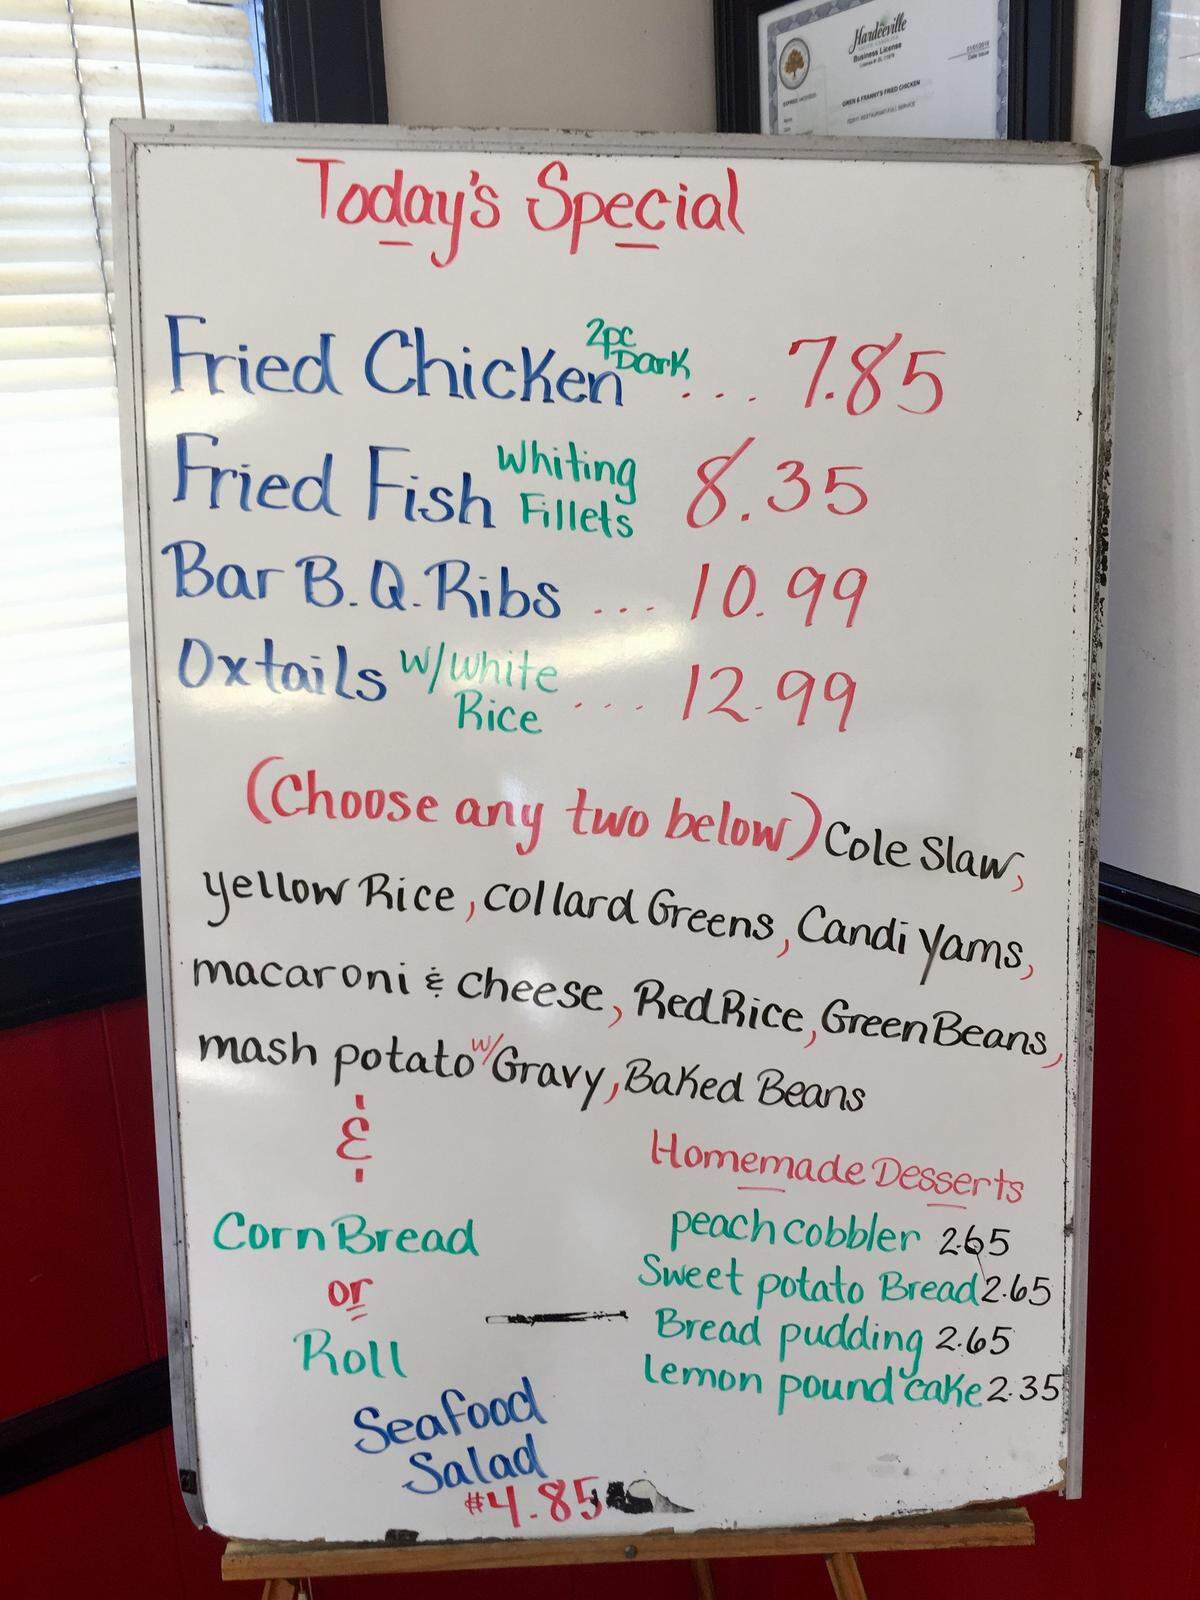 Hardeeville
SOUTH CAROLINA
Business License
Date Issued
OWEN & FRANNY'S FRIED CHICKEN
Today's Special
Fried Chicken 2pc Dark ... 7.85
Fried Fish Whiting Fillets 8.35
Bar B.Q. Ribs ... 10.99
Oxtails w/white Rice ... 12.99
(Choose any two below) Cole Slaw,
yellow Rice, collard Greens, Candi Yams,
macaroni & cheese, Red Rice, Green Beans,
mash potato w/ Gravy, Baked Beans
&
Corn Bread
or
Roll
Homemade Desserts
peach cobbler 2.65
Sweet potato Bread 2.65
Bread pudding 2.65
lemon pound cake 2.35
Seafood
Salad
$4.85